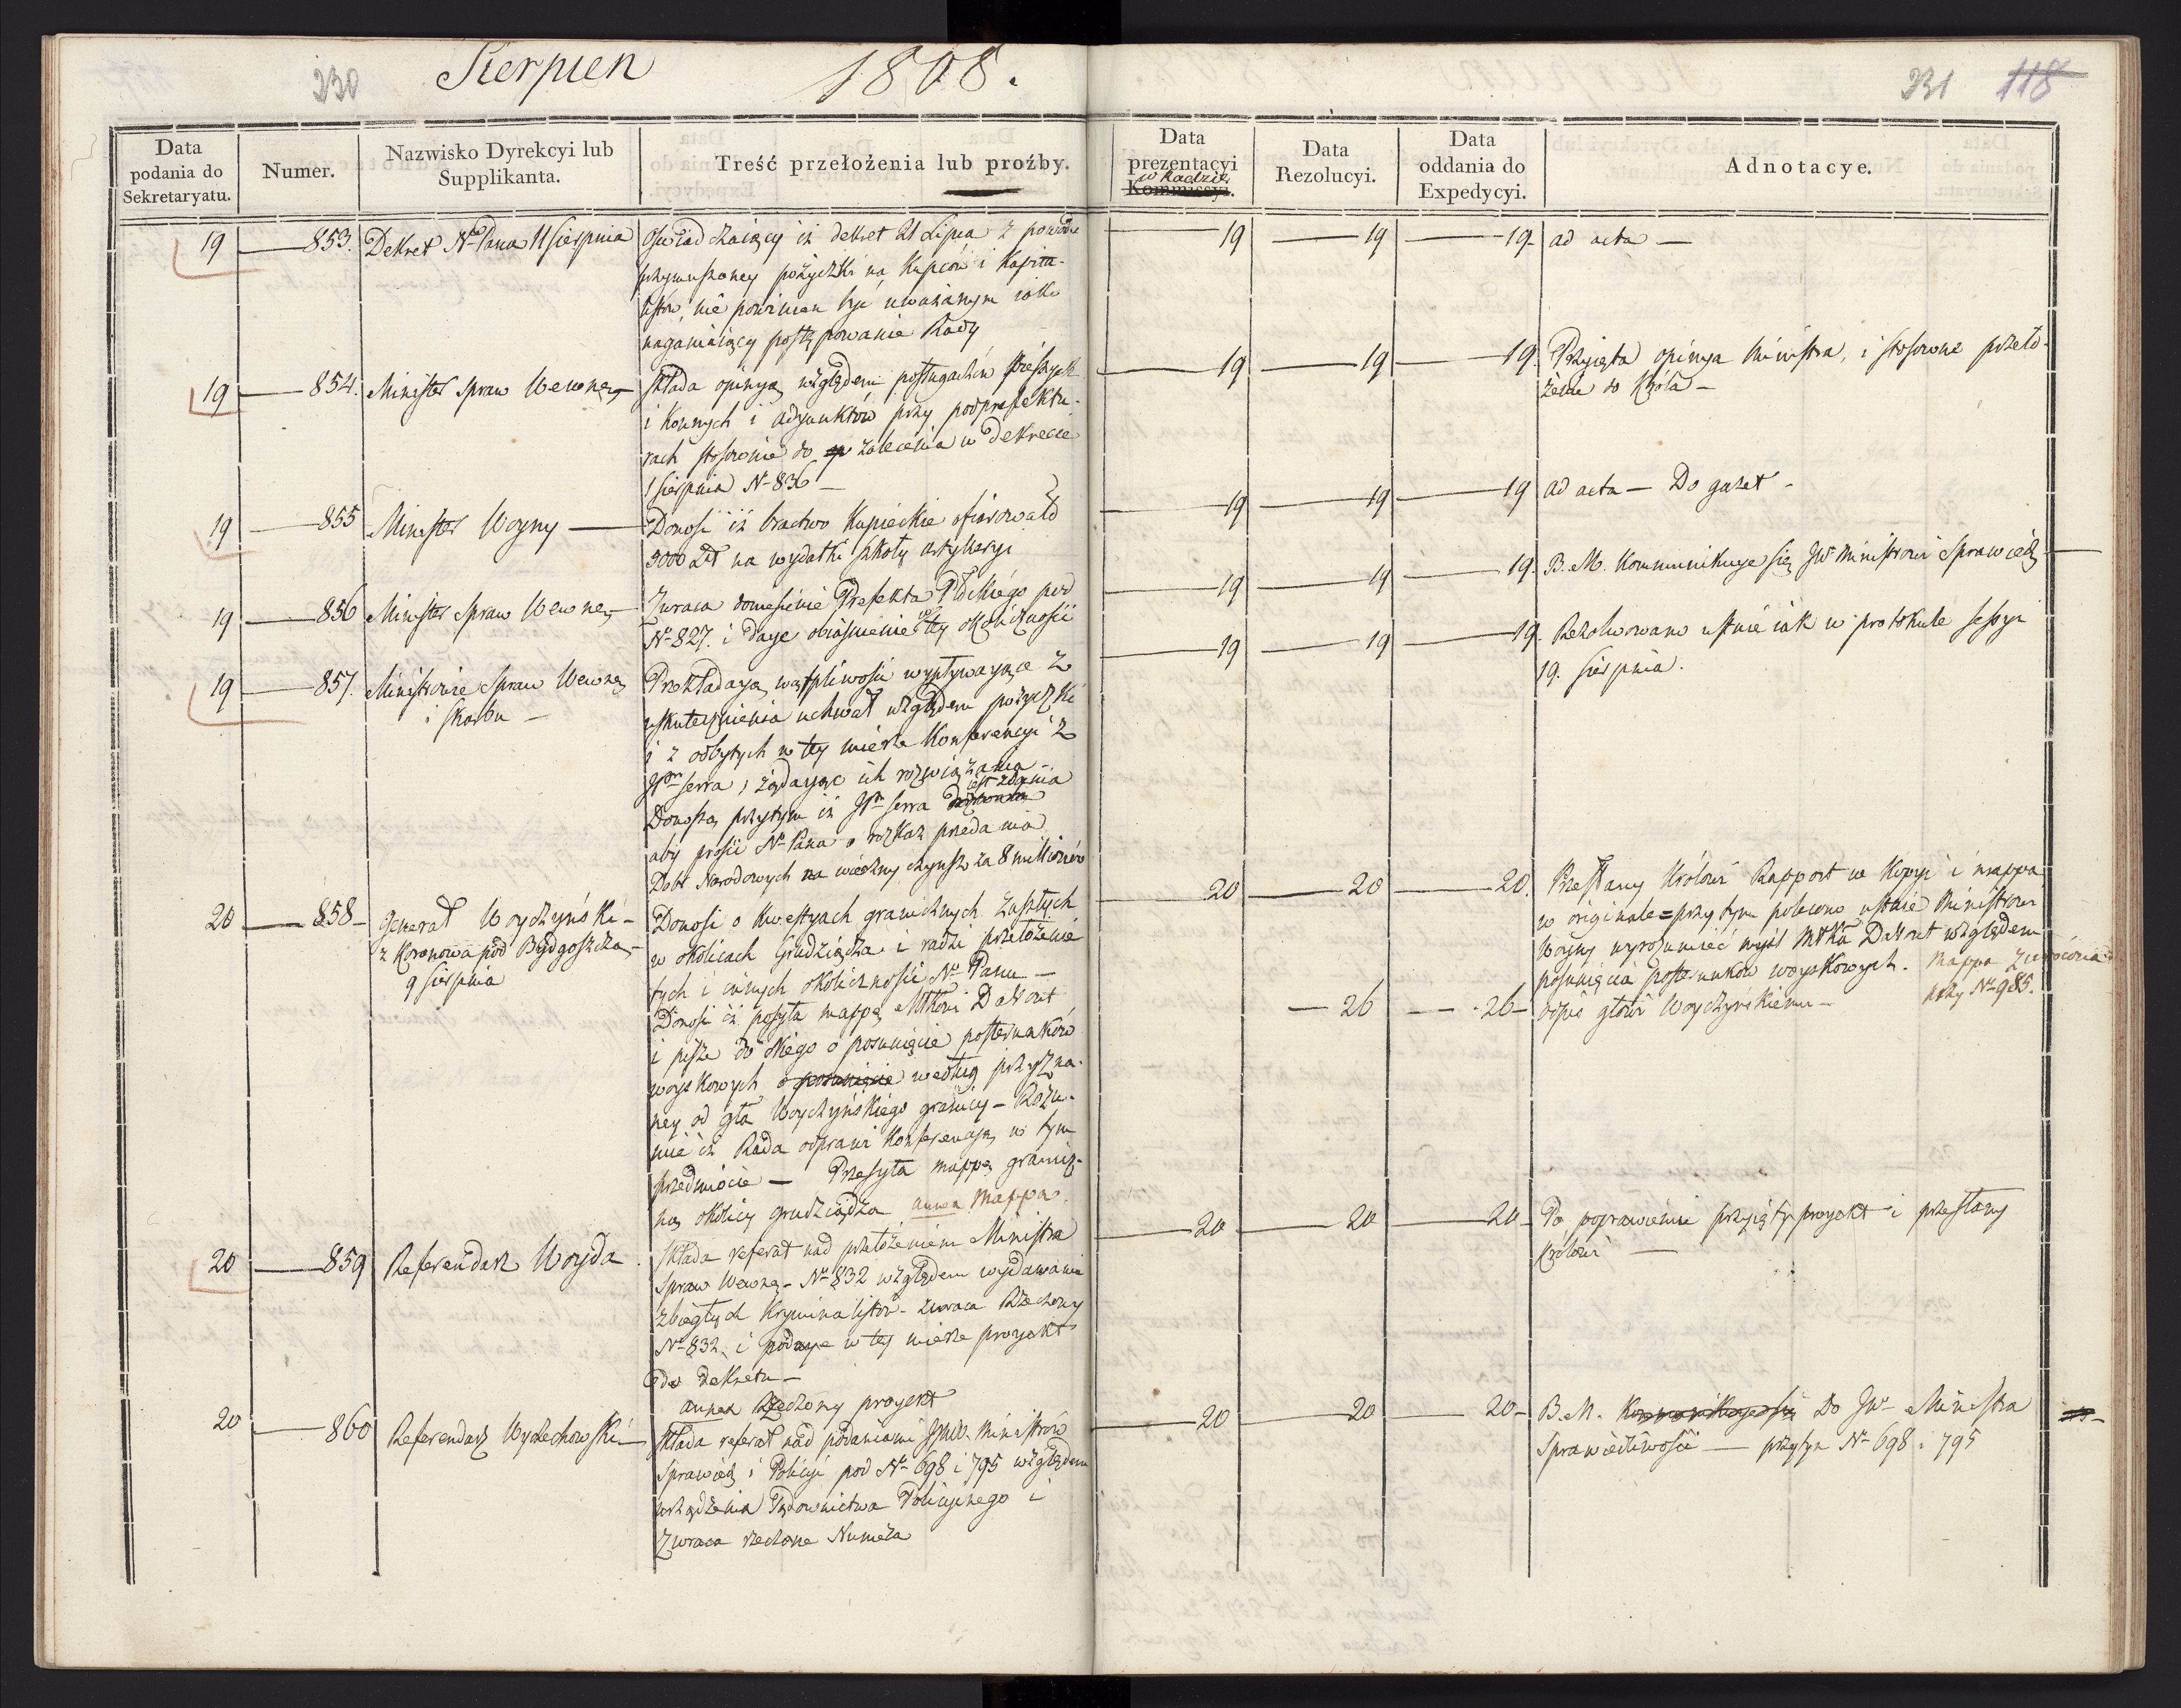 230
Sierpien 1808.
231 118
Data podania do Sekretaryatu.
Numer.
Nazwisko Dyrekcyi lub Supplikanta.
Treść przełożenia lub proźby.
Data prezentacyi w Radzie Kommissyi.
Data Rezolucyi.
Data oddania do Expedycyi.
Adnotacye.
19 853. Dekret Nº Pana 11 Sierpnia
oświadczaiący iż dekret 21 Lipca z powodu
przymuszoney pożyczki na Kupców i Kapita-
listow, nie powinien być uważanym iako
naganiaiący postępowanie Rady
19 19 19. ad acta —
19 854. Minister Spraw Wewnę
Składa opinyą względem posługaczów pieszych
i konnych i adjunktów przy podprefektu-
rach stosownie do zalecenia w Dekrecie
1 Sierpnia Nº 836 —
19 19 19. Przyięta opinya Ministra, i stosowne przeło-
żenie do Króla —
19 855 Minister Woyny
Donosi iż bractwo Kupieckie ofiarowało
3000 Zł na wydatki szkoły artylleryi
19 19 19 ad acta — Do gazet -
19 856 Minister Spraw Wewnę
Zwraca doniesienie Prefekta Płockiego pod
Nº 827. i daye obiaśnienie tey okoliczności
19 19 19. B. M. Kommunikuye się JW Ministrowi Sprawiedę
19 857. Ministrowie Spraw Wewnę
i Skarbu —
Przekładayą wątpliwości wypływayące z
uskutecznienia uchwał względem pożyczki
i z odbytych w tey mierze Konferencyi z
JPm Serra, żądayąc ich rozwiązania —
Donoszą przytym iż JPm Serra iest zdania
aby prosić Nº Pana o rozkaz przedania
Dobr Narodowych na wieczny czynsz za 8 millionów
19 19 19. Rezolwowano ustnie iak w protokule sessyi
19. Sierpnia.
20 858 — Generał Woyczyński —
z Koronowa pod Bydgoszczą —
9 Sierpnia
Donosi o kwestyach granicznych zaszłych
w okolicach Grudziądza i radzi przełożenie
tych i innych okoliczności Nº Panu —
Donosi iż posyła mappę Mtkowi Davout
i pisze do niego o posunięcie posterunków
woyskowych o posunięcie według przyzna-
ney od Gła Woyczyńskiego granicy — Rozu-
mie iż Rada odprawi Konferencyą w tym
przedmiocie — Przesyła mappę granicz-
ną okolicy Grudziądza annex Mappa.
20 20 20. Przesłany Królowi Rapport w kopyi i mappa
w originale = przy tym polecono ustnie Ministrowi
Woyny wyrozumieć myśl Mtka Davout względem
posunięcia posterunków woyskowych. Mappa zwrócona
przy Nº 985.
26 26 — odpis głowi Woyczyńskiemu —
20 859 Referendarz Woyda
Składa referat nad przełożeniem Ministra
Spraw Wewnę — Nº 832 względem wydawania
zbiegłych kryminalistów — zwraca Rzeczony
Nº 832. i podaye w tey mierze proyekt
do dekretu —
annex Rzeczony proyekt
20 20 20 — Po poprawieniu przyięty proyekt i przesłany
Królowi —
20 860 Referendarz Wyczechowski —
Składa referat nad podaniami JWW. Ministrów
Sprawiedę i Policyi pod Nº 698 i 795 względem
urządzenia Sądownictwa Policyinego i
Zwraca rzeczone Numera
20 20 20 — B. M. Kommunikuye się Do JW Ministra
Sprawiedliwości — przytym Nº 698 i 795